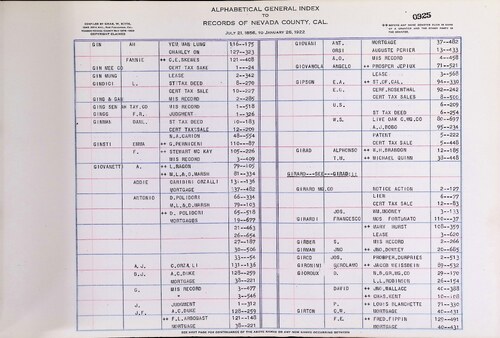 ALPHABETICAL GENERAL INDEX
TO
RECORDS OF NEVADA COUNTY, CAL.
JULY 21, 1856, TO JANUARY 26, 1922
0325
GIN AH YEU MAN LUNG 116-175
CHARLEY ON 127-323
FANNIE ++ C.E.SKEWES 121-408
GIN WEE CO CERT TAX SALE 1-26
GIN WUNG LEASE 2-342
GINDICI L. ST TAX DEED 8-279
CERT TAX SALE 10-227
GING & GAU MIS RECORD 2-285
GING SEN TAY.CO MIS RECORD 1-518
GINGG F.R. JUDGMENT 1-326
GINNA RAUL. ST TAX DEED 10-183
CERT TAXSALE 12-204
N.A.CARION 48-554
GINSTI EMMA ++ G.PERNICCI 110-87
F. ++ STEWART MC KAY 105-226
MIS RECORD 3-409
GIOVANETTI A. ++ L.NASON 79-105
++ M.L.& D.MARSH 81-334
ADDIE CARISINI ORZALLI 131-136
MORTGAGE 37-482
ANTONIO D.POLIDORI 66-334
M.L.&D.MARSH 79-103
++ D. POLIDORI 65-518
MORTGAGES 19-677
21-463
26-654
27-187
30-506
33-554
A.J. C.ORZALLI 131-136
B.J. A.C.DUKE 128-259
MORTGAGE 38-221
G. MIS RECORD 3-477
" 3-546
J. JUDGMENT 1-312
J.F. A.C.DUKE 128-259
++ F.L.ARBOGAST 121-148
MORTGAGE 38-221
GIOVANI ANT. MORTGAGE 37-482
ORSI AUGUSTE PERIER 13-433
A.O. MIS RECORD 4-658
GIOVANOLA ANGELO ++ PROSPER JEFIQI 71-521
LEASE 3-568
GIPSON E.A. ++ ST.OF CAL. 94-330
E.G. CERF.ROSENTHAL 92-242
CERT TAX SALES 8-506
H.S. 6-209
ST TAX DEED 6-254
W.S. LIVE OAK C.MG.CO 80-697
A.J.ROBO 95-234
PATENT 5-222
CERT TAX SALE 5-448
GIRAD ALPHONSO ++ W.H.BRANDOR 12-185
T.M. ++ MICHAEL QUINN 38-448
GIRARD---SEE---GIRARDIN
GIRARD MG.CO NOTICE ACTION 2-127
LIEN 6-77
CERT TAX SALE 12-83
JOS. WM.MOOREY 3-133
GIRARDI FRANCESCO MOS FORTUNATO 110-37
++ MARY HURST 108-359
LEASE 3-620
GIRBER S. MIS RECORD 2-266
GIRVAN JNO ++ JNO.DORSEY 20-665
GIRCD JOS. PROMPER.DUMPRIES 2-513
GIRONINI GEROLAMO ++ JACOB WEISSBEIN 89-532
GIOROUX B. N.B.GR.MG.CO 29-170
L.L.ROBINSON 26-154
DAVID ++ JNO.WALLACE 38-444
++ CHAS.KENT 10-108
P. ++ LOUIS BLANCHETTE 71-330
GIRTON C.M. MORTGAGE 40-431
F.E. ++ FRED.TIPPIN 129-491
MORTGAGE 40-431